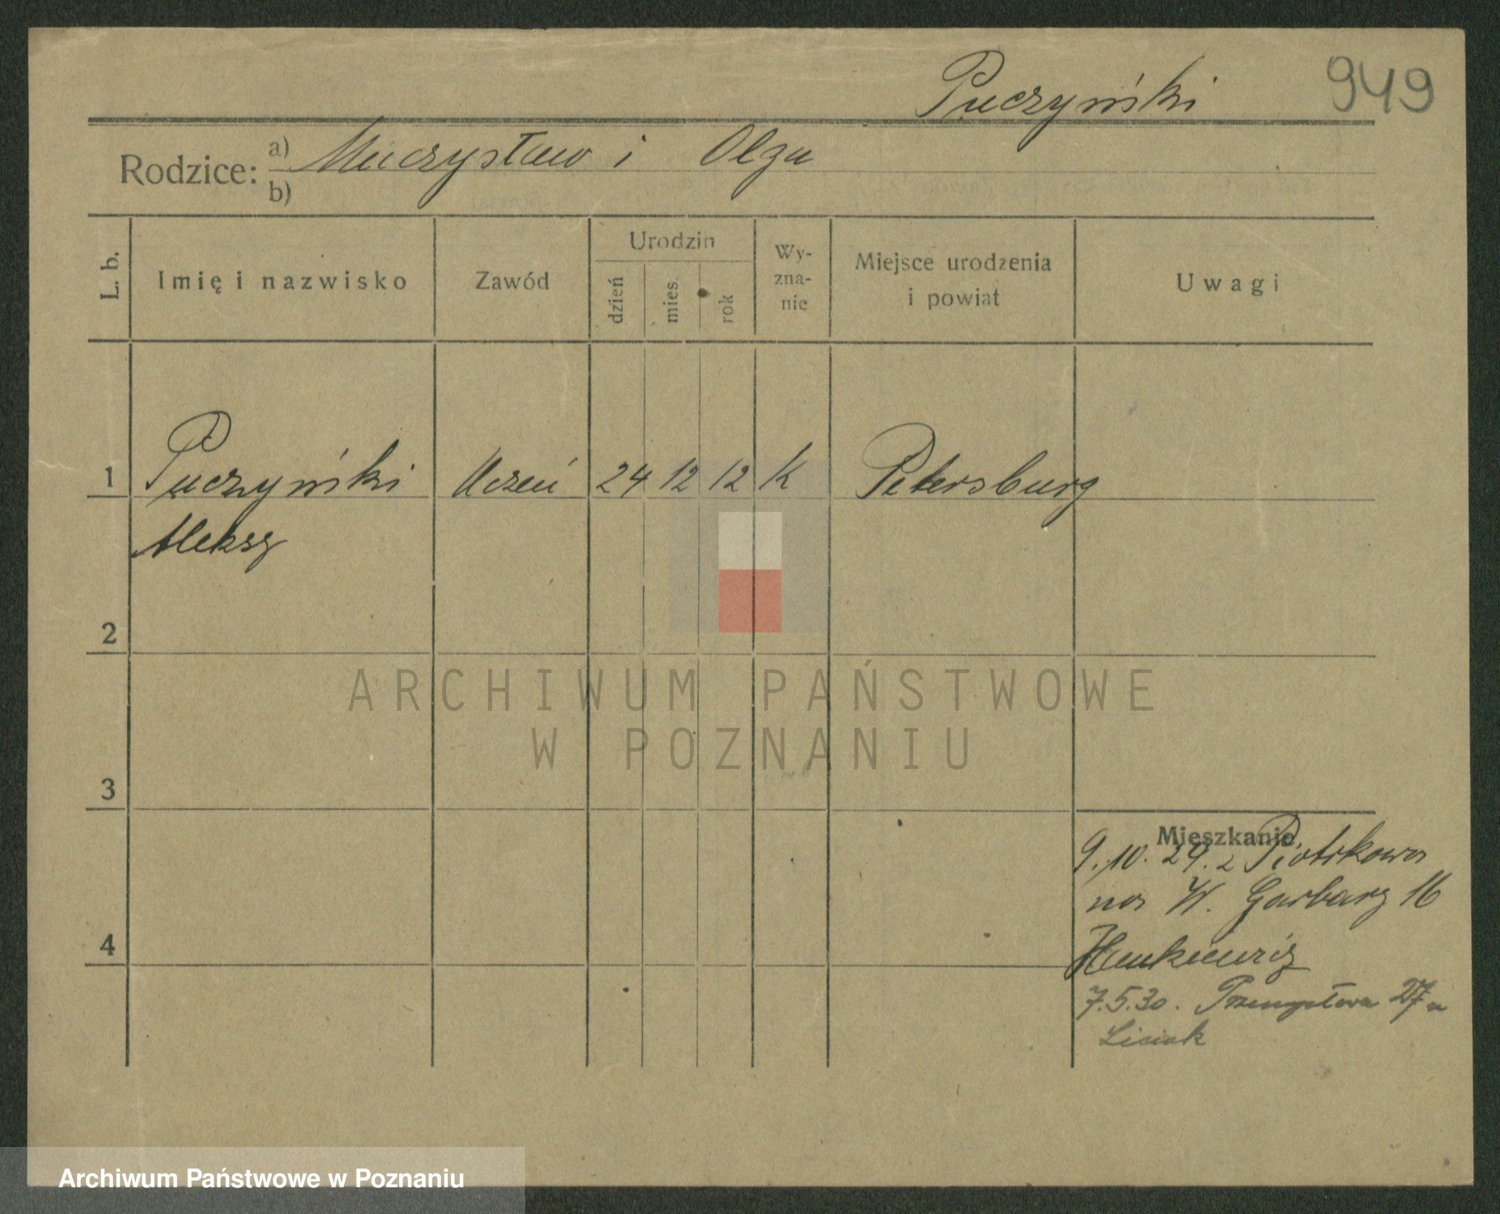 Puczyński 949
Rodzice: a) Mieczysław i Olga
b)
L. b.
Imię i nazwisko
Zawód
Urodzin
dzień
mies.
rok
Wy-
zna-
nie
Miejsce urodzenia
i powiat
Uwagi
1 Puczyński Uczeń 24 12 12 K Petersburg
Aleksy
2
3
4
Mieszkanie
9.10.29. z Piotrkowa
na W. Garbary 16
7.5.30. Przemysłowa 27a
Lisiak
ARCHIWUM PAŃSTWOWE
W POZNANIU
Archiwum Państwowe w Poznaniu